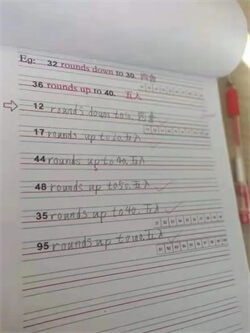 Eg: 32 rounds down to 30. 四舍
36 rounds up to 40. 五入
12 rounds down to 10. 四舍
17 rounds up to 20. 五入
44 rounds up to 40. 五入
48 rounds up to 50. 五入
35 rounds up to 40. 五入
95 rounds up to 100. 五入